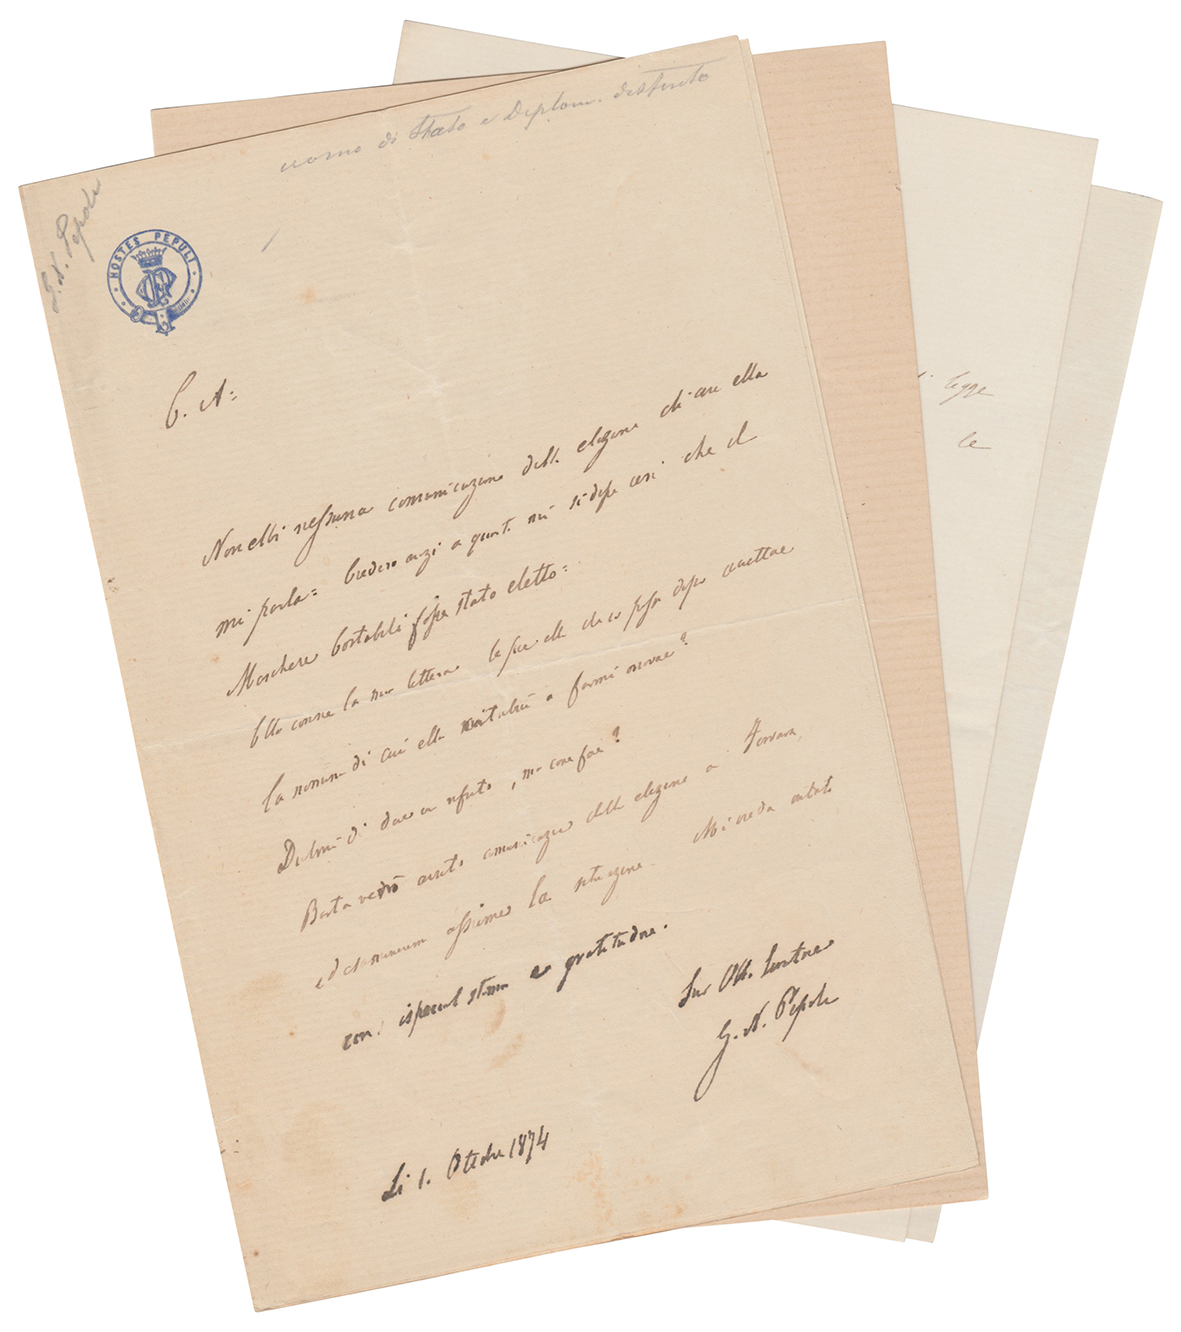 uomo di Stato e Diplom. distinto
G. N. Pepoli
HOSTES PEPULI
C. A=
Non ebbi nessuna comunicazione della elezione di cui ella
mi parla= Credevo anzi a quanto mi si disse così che il
Marchese Costabili fosse stato eletto=
Ella conne la sua lettera le pare ella ch'io possa dopo accettare
la nomina di cui ella vorrebbe farmi onore?
di dare un rifiuto, ma come fare?
Basta vedrò avuto comunicazione della elezione a Ferrara,
ed esamineremo assieme la situazione. Mi creda intanto
con: ispecial stima e gratitudine.
Suo Obb. Servitore
G. N. Pepoli
Li 1. Ottobre 1874
di legge
le